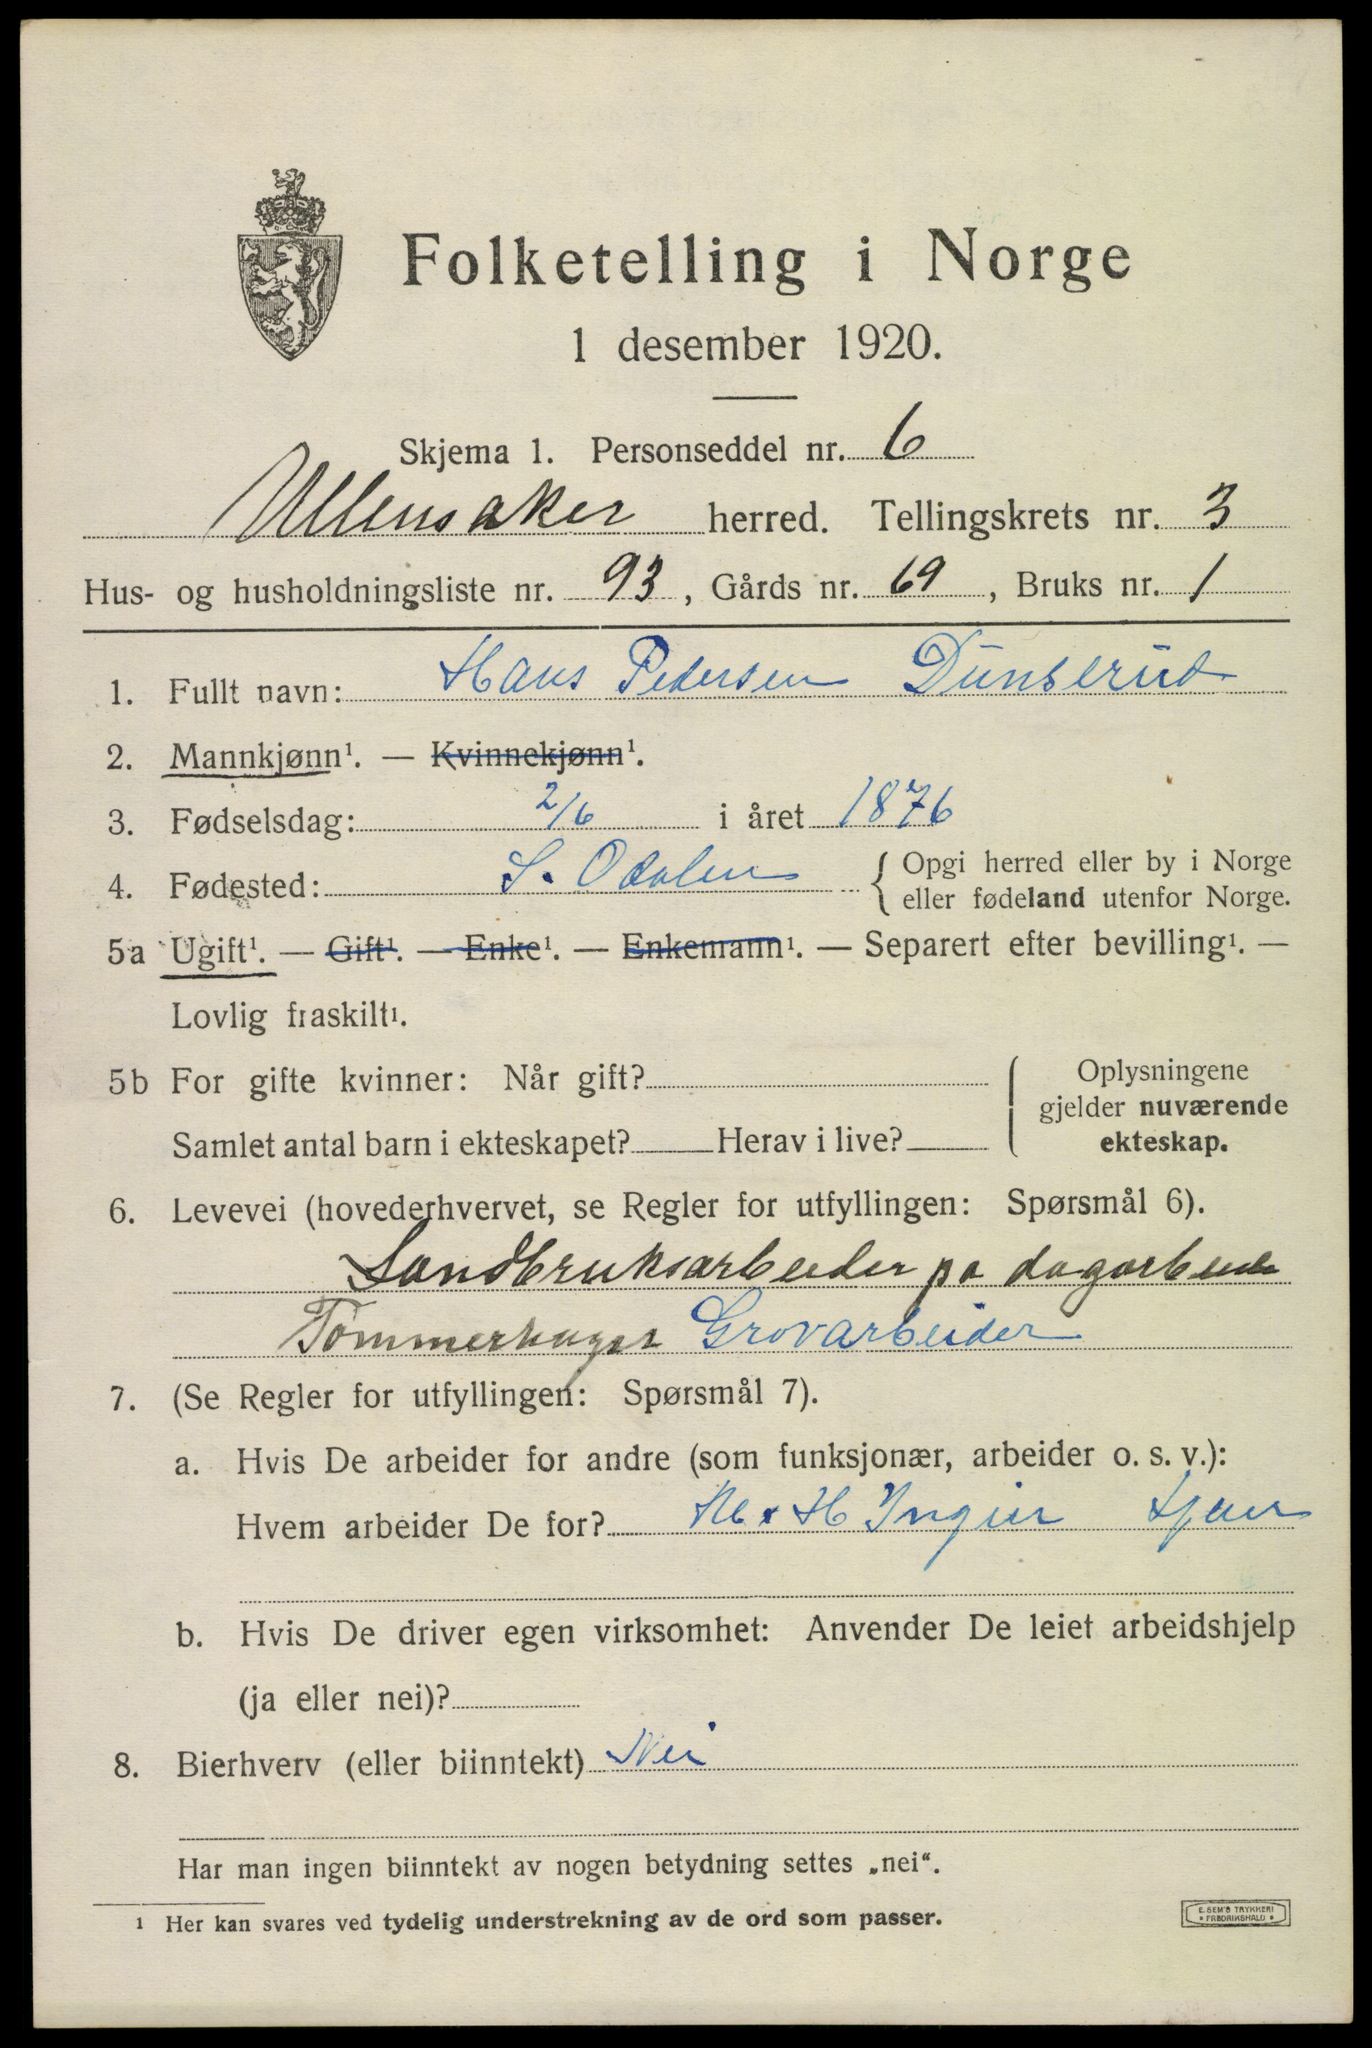 Folketelling i Norge
1 desember 1920.
Skjema 1. Personseddel nr. 6
Ullensaker herred. Tellingskrets nr. 3
Hus- og husholdningsliste nr. 93, Gårds nr. 69, Bruks nr. 1
1. Fullt navn: Hans Pedersen Dunserud
2. Mannkjønn¹. — Kvinnekjønn¹.
3. Fødselsdag: 2/6 i året 1876
4. Fødested: S. Odalen { Opgi herred eller by i Norge
eller fødeland utenfor Norge.
5a Ugift¹. — Gift¹. — Enke¹. — Enkemann¹. — Separert efter bevilling¹. —
Lovlig fraskilt¹.
5b For gifte kvinner: Når gift?
Samlet antal barn i ekteskapet? Herav i live?
Oplysningene
gjelder nuværende
ekteskap.
6. Levevei (hovederhvervet, se Regler for utfyllingen: Spørsmål 6).
Landbruksarbeider på dagarbeide
Tømmerhuger Grovarbeider
7. (Se Regler for utfyllingen: Spørsmål 7).
a. Hvis De arbeider for andre (som funksjonær, arbeider o. s. v.):
Hvem arbeider De for? H Ingier
b. Hvis De driver egen virksomhet: Anvender De leiet arbeidshjelp
(ja eller nei)?
8. Bierhverv (eller biinntekt) Nei
Har man ingen biinntekt av nogen betydning settes „nei“.
¹ Her kan svares ved tydelig understrekning av de ord som passer.
E. SEM'S TRYKKERI
• FREDRIKSHALD •